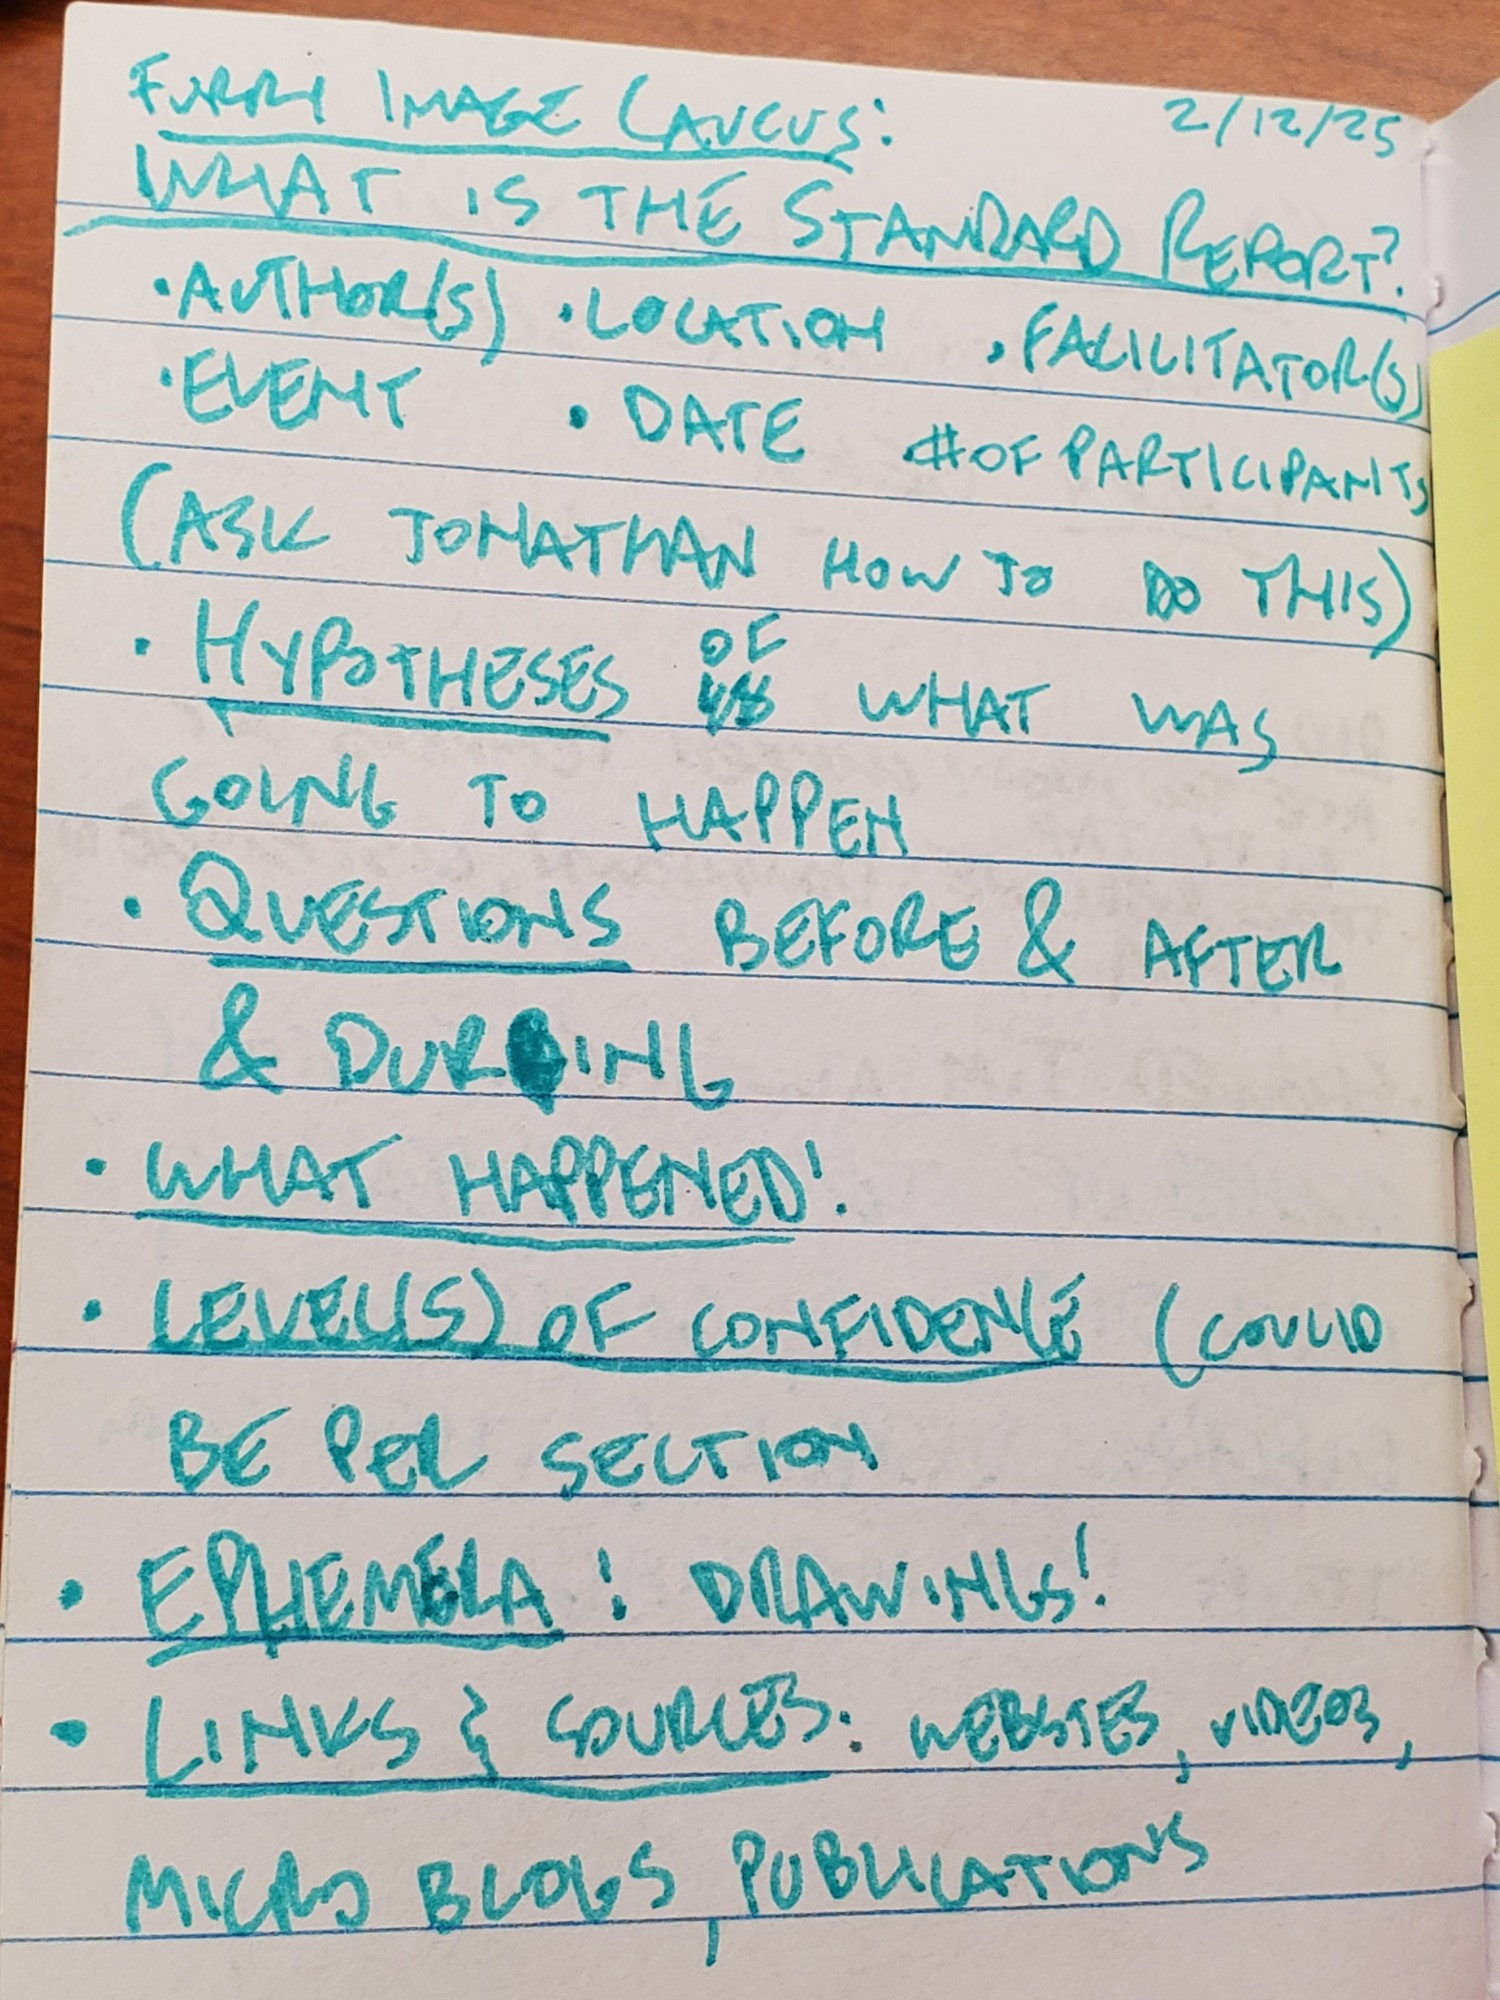 FURRY IMAGE CAUCUS: 2/12/25
WHAT IS THE STANDARD REPORT?
• AUTHOR(S) • LOCATION • FACILITATOR(S)
• EVENT • DATE # OF PARTICIPANTS
(ASK JONATHAN HOW TO DO THIS)
• HYPOTHESES OF WHAT WAS
GOING TO HAPPEN
• QUESTIONS BEFORE & AFTER
& DURING
• WHAT HAPPENED!
• LEVEL(S) OF CONFIDENCE (COULD
BE PER SECTION
• EPHEMERA: DRAWINGS!
• LINKS & SOURCES: WEBSTES, VIDEOS,
MICRO BLOGS, PUBLICATIONS